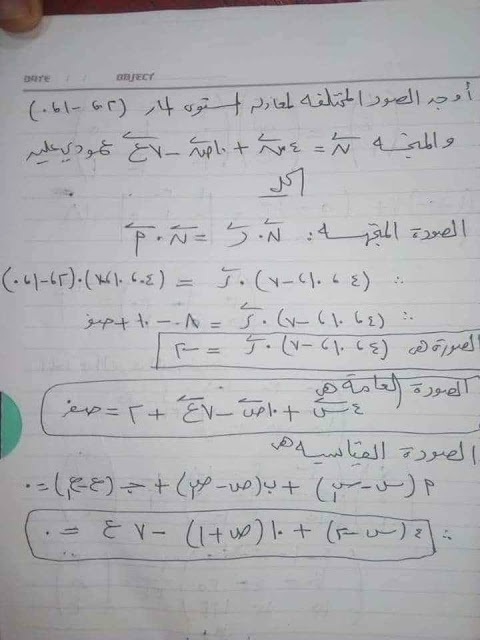 DATE : : OBJECT
أوجد الصور المختلفة لمعادلة المستوى المار (٢، -١، ٠)
والمتجه ن = ٤س + ١٠ص - ٧ع عمودي عليه
الحل
الصورة المتجهة: ن . ر = ن . م
∴ (٤، ١٠، -٧) . ر = (٤، ١٠، -٧) . (٢، -١، ٠)
∴ (٤، ١٠، -٧) . ر = ٨ - ١٠ + صفر
الصورة هي (٤، ١٠، -٧) . ر = -٢
الصورة العامة هي
٤س + ١٠ص - ٧ع + ٢ = صفر
الصورة القياسيه هي
م (س - س) + ب (ص - ص) + جـ (ع - ع) = ٠
∴ ٤ (س - ٢) + ١٠ (ص + ١) - ٧ ع = ٠